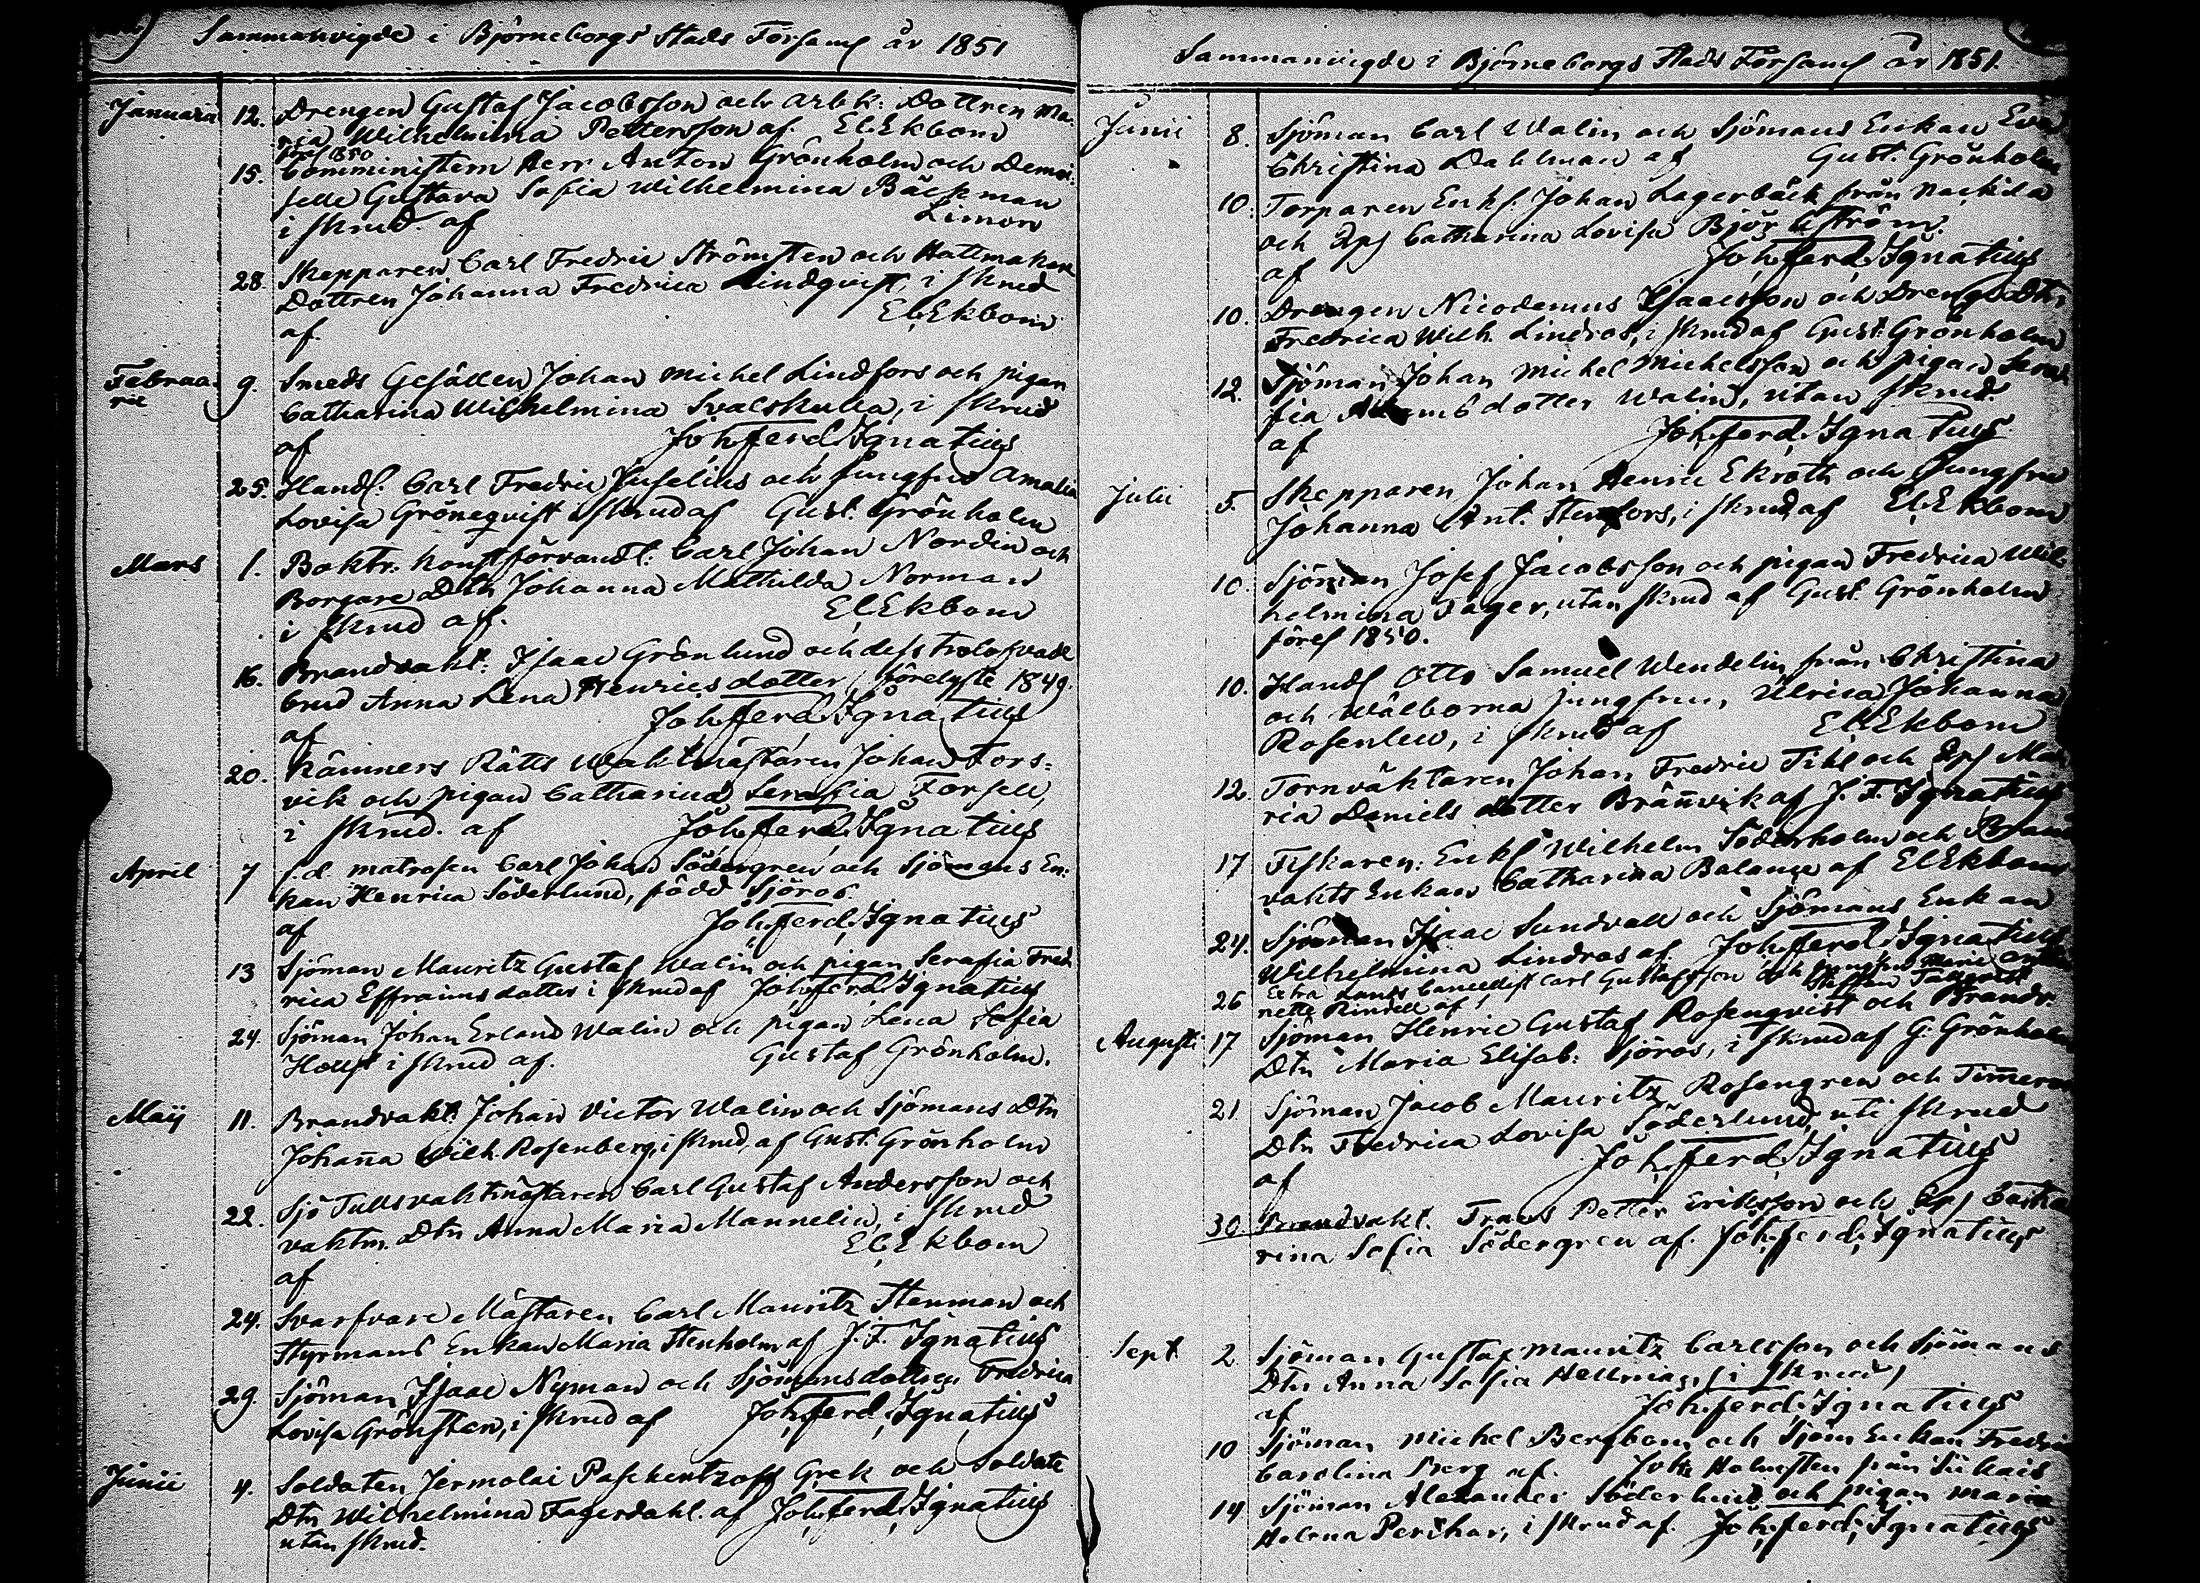 Sammanvigde i Björneborgs Stads Församl år 1851
Januarii 12. Drengen Gustaf Jacobsson och arbk: Dottren Ma-
ria Wilhelmina Pettersson af. El.Ekbom
förel 1850
15. Comministern Herr Anton Grönholm och Demoi-
selle Gustava Sofia Wilhelmina Bäckman
i skrud. af Limon
28. Skepparen Carl Fredric Strömsten och Hattmakare
Dottren Johanna Fredrica Lindqvist, i skrud
af. El.Ekbom
Februa-
rii 9. Smeds Gesällen Johan Michel Lindfors och pigan
Catharina Wilhelmina Svalskulla, i skrud
af Joh.ferd.Ignatius
25. Handl. Carl Fredric Juselius och Jungfru Amalia
Lovisa Gröneqvist i skrud af Gust. Grönholm
Mars 1. Boktr. konstförvandt: Carl Johan Nordin och
Borgare Dtn Johanna Mathilda Norman
i skrud af. El.Ekbom
16. Brandvakt: Isaac Grönlund och dess trolofvade
brud Anna Lena Henricsdotter, förelyste 1849.
af Joh.ferd.Ignatius
20. Kämners Rätts Waktmästaren Johan Fors-
vik och pigan Catharina Serafia Forsell,
i skrud. af Joh.ferd.Ignatius
April 7 f.d. matrosen Carl Johan Södergren och Sjömans En-
kan Henrica Söderlund, född Sjöros.
af Joh.ferd.Ignatius
13 Sjöman Mauritz Gustaf Walin och pigan Serafia Fred-
rica Effraimsdotter i skrud af Joh.ferd.Ignatius
24. Sjöman Johan Erland Walin och pigan Lena Sofia
Hollst i skrud af. Gustaf Grönholm.
Maij 11. Brandvakt. Johan Victor Walin och Sjömans Dtn
Johanna Wilh. Rosenberg, i skrud, af Gust. Grönholm
22. Sjö Tullsvaktmästaren Carl Gustaf Andersson och
vaktm. Dtn Anna Maria Mannelin, i skrud
af El.Ekbom
24. Svarfvare Mästaren Carl Mauritz Stenman och
Styrmans Enkan Maria Stenholm af J.F. Ignatius
29. Sjöman Isaac Nyman och Sjömansdotter Fredrica
Lovisa Grönsten, i skrud af Joh.ferd.Ignatius
Junii 4. Soldaten Jermolai Paschentzoff Grek och Soldate
Dtn Wilhelmina Fagerdahl. af Joh.ferd.Ignatius
utan skrud.
Sammanvigde i Björneborgs Stads Församl år 1851.
Junii 8. Sjöman Carl Walin och Sjömans Enkan Eva
Christina Dahlman af Gust. Grönholm
10. Torparen Enkl. Johan Lagerbäck från
och Catharina Lovisa Björkström.
af Joh.ferd.Ignatius
10. Drengen Nicodemus Isaacsson och Drengs Dtn
Fredrica Wilh. Lindros, i skrud af Gust. Grönholm
12. Sjöman Johan Michel Michelsson och pigan Sera-
fia Adamsdotter Walin, utan skrud.
af Joh.ferd.Ignatius
Julii 5 Skepparen Johan Henric Ekroth och Jungfru
Johanna Ant. Stenfors, i skrud af El.Ekbom
10. Sjöman Josef Jacobsson och pigan Fredrica Wil-
helmina Fager, utan skrud af Gust. Grönholm
förel 1850.
10. Handl Otto Samuel Wendelin från Christina
och Wälborna jungfru, Ulrica Johanna
Rosenlew, i skrud af El.Ekbom
12. Tornväktaren Johan Fredric Tihl och Ma-
ria Daniels dotter Brännvik af J.F. Ignatius
17 Fiskaren: Enkl Wilhelm Söderholm och Brand
vakts Enkan Catharina Balange af El.Ekbom
24. Sjöman Isaac Sundvall och Sjömans Enkan
Wilhelmina Lindros af. Joh.ferd.Ignatius
26 Extra Lands Cancellist Carl Gustafsson och Jungfru Maria
nette Rindell af
Augusti 17 Sjöman Henric Gustaf Rosenqvist och Brandv.
Dtn Maria Elisab: Sjöros, i skrud af G. Grönholm
21 Sjöman Jacob Mauritz Rosengren och Timmerm
Dtn Fredrica Lovisa Söderlund, uti skrud
af Joh.ferd.Ignatius
30. Brandvakt. Frans Petter Eriksson och Catha
rina Sofia Södergren af. Joh.ferd.Ignatius
Sept 2 Sjöman Gustaf Mauritz Carlsson och Sjömans
Dtn Anna Sofia Hellman, i skrud,
af Joh.ferd.Ignatius
10 Sjöman Michel Bergbom och Sjöm Enkan Fredrica
Carolina Berg af. Joh: Holmsten från Siikais
14 Sjöman Alexander Söderlund och pigan Maria
Helena Perihar, i skrud af. Joh.ferd.Ignatius